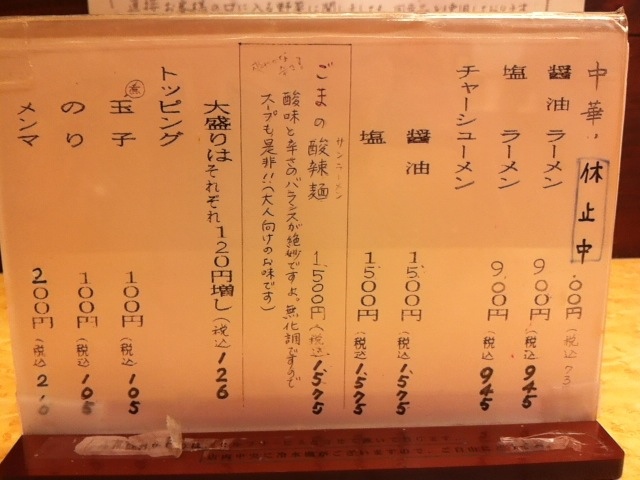 中華
休止中
00円(税込 73
醤油 ラーメン 900円(税込)945
塩 ラーメン 900円(税込)945
チャーシューメン
醤油 1,500円(税込)1,575
塩 1,500円(税込)1,575
サンラーメン
ごまの酸辣麺 1,500円(税込)1,575
酸味と辛さのバランスが絶妙ですよ。無化調ですので
スープも是非!!(大人向けのお味です)
大盛りはそれぞれ120円増し(税込)126
トッピング
煮玉子 100円(税込)105
のり 100円(税込)105
メンマ 200円(税込)210